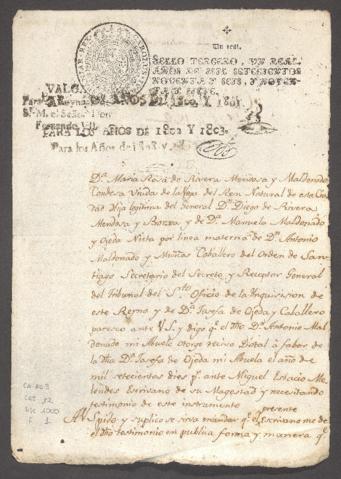 Un real.
SELLO TERCERO, UN REAL
AÑOS DE MIL SETECIENTOS
NOVENTA Y SEIS, Y NOVEN-
TA Y SIETE.
VALGA
AÑOS DE 1800 Y 1801
Fernando VII
PARA LOS AÑOS DE 1802 Y 1803
Para los Años de 1808 y
Dª Maria Rosa de Rivera Mendosa y Maldonado
Condesa Viuda de la Vega del Ren Natural de esta Ciu
dad Hija legitima del General Dn Diego de Rivera
Mendosa y y de Dª Manuela Maldonado
y Ojeda Nieta por linea materna de Dn Antonio
Maldonado y Muñas Caballero del Orden de San-
tiago Secretario del Secreto y Receptor General
del Tribunal del Sto Oficio de la Inquisision de
este Reyno y de Dª Josefa de Ojeda y Caballero
paresco ante VS. y digo qe el dho Dn Antonio Mal-
donado mi Abuelo otorgo recivo Dotal à fabor de
la dha Dª Josefa de Ojeda mi Abuela el año de
mil seteciestos dies qe ante Miguel Estacio Me-
lendes Escrivano de su Magestad y necesitando
testimonio de este instrumento
A VS pido y suplico se sirva mandar qe el presente Escrivano me de
el dho testimonio en publica forma y manera qe
1